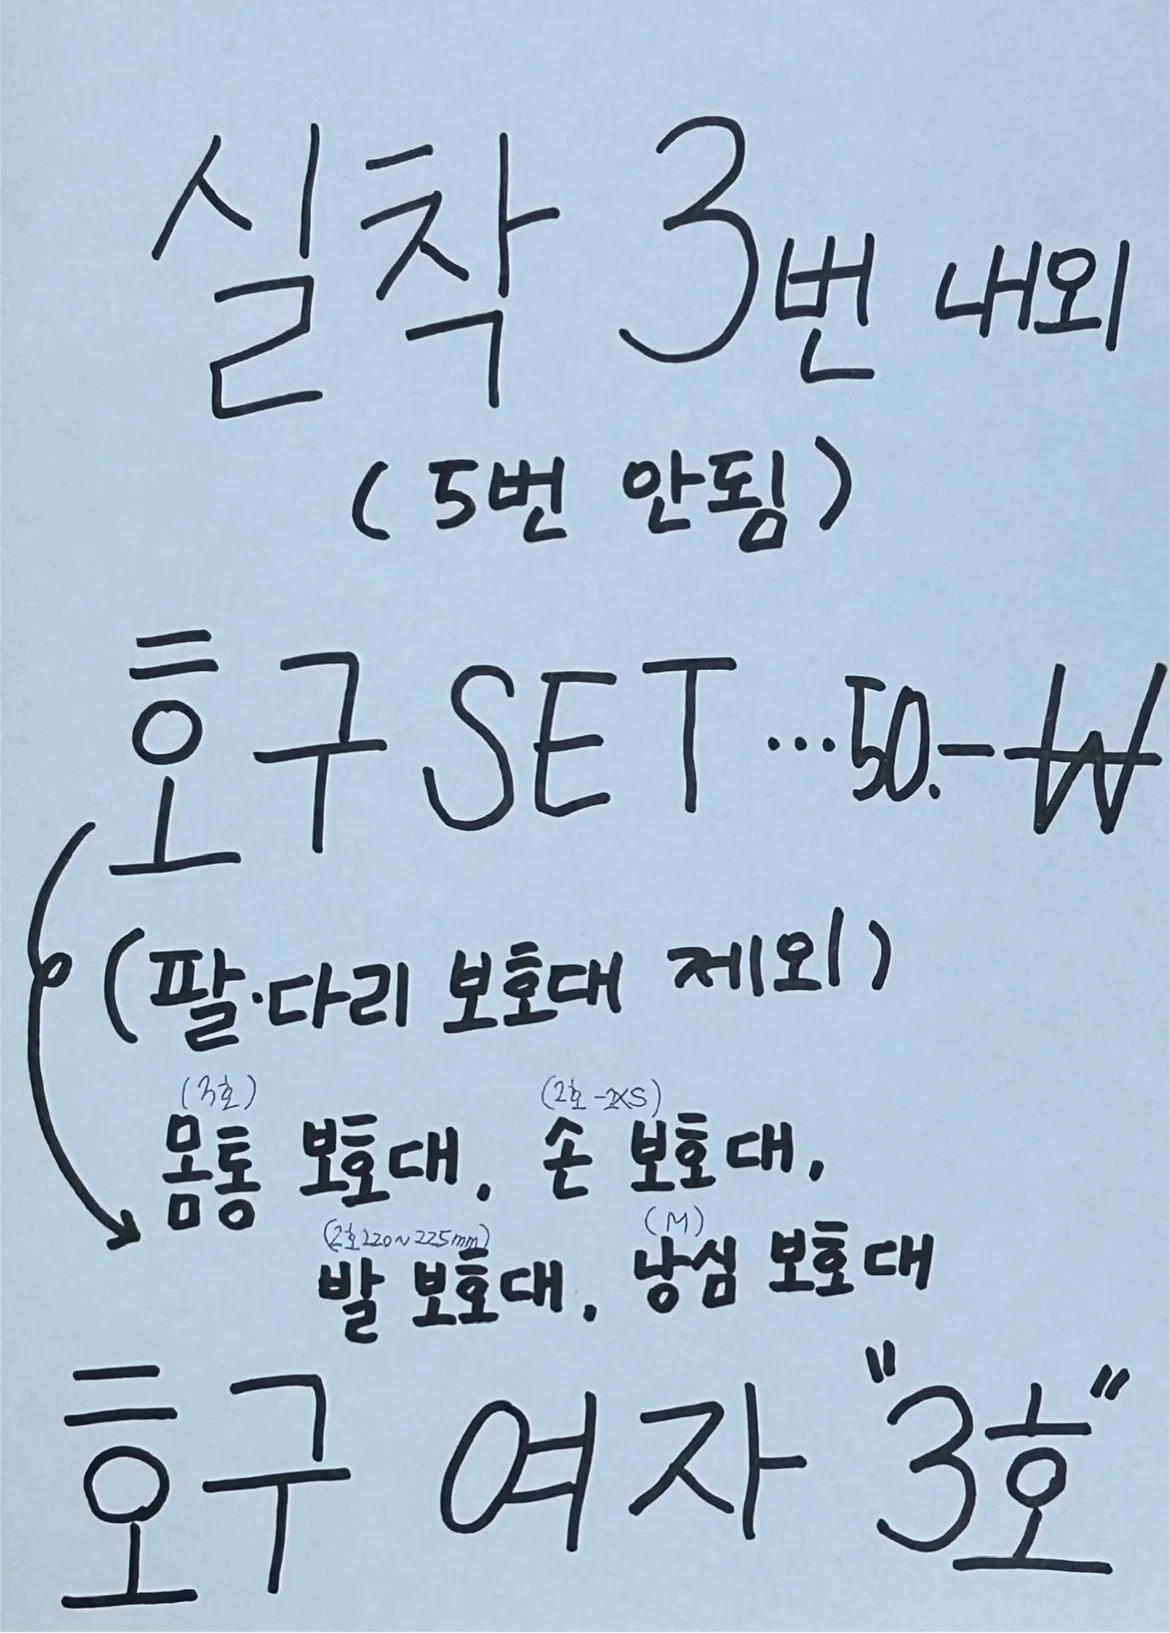 실착 3번 내외
(5번 안됨)
호구 SET ... 50.-₩
(팔·다리 보호대 제외)
(3호) (2호-2XS)
몸통 보호대, 손 보호대,
(2호 220~225mm) (M)
발 보호대, 낭심 보호대
호구 여자 "3호"